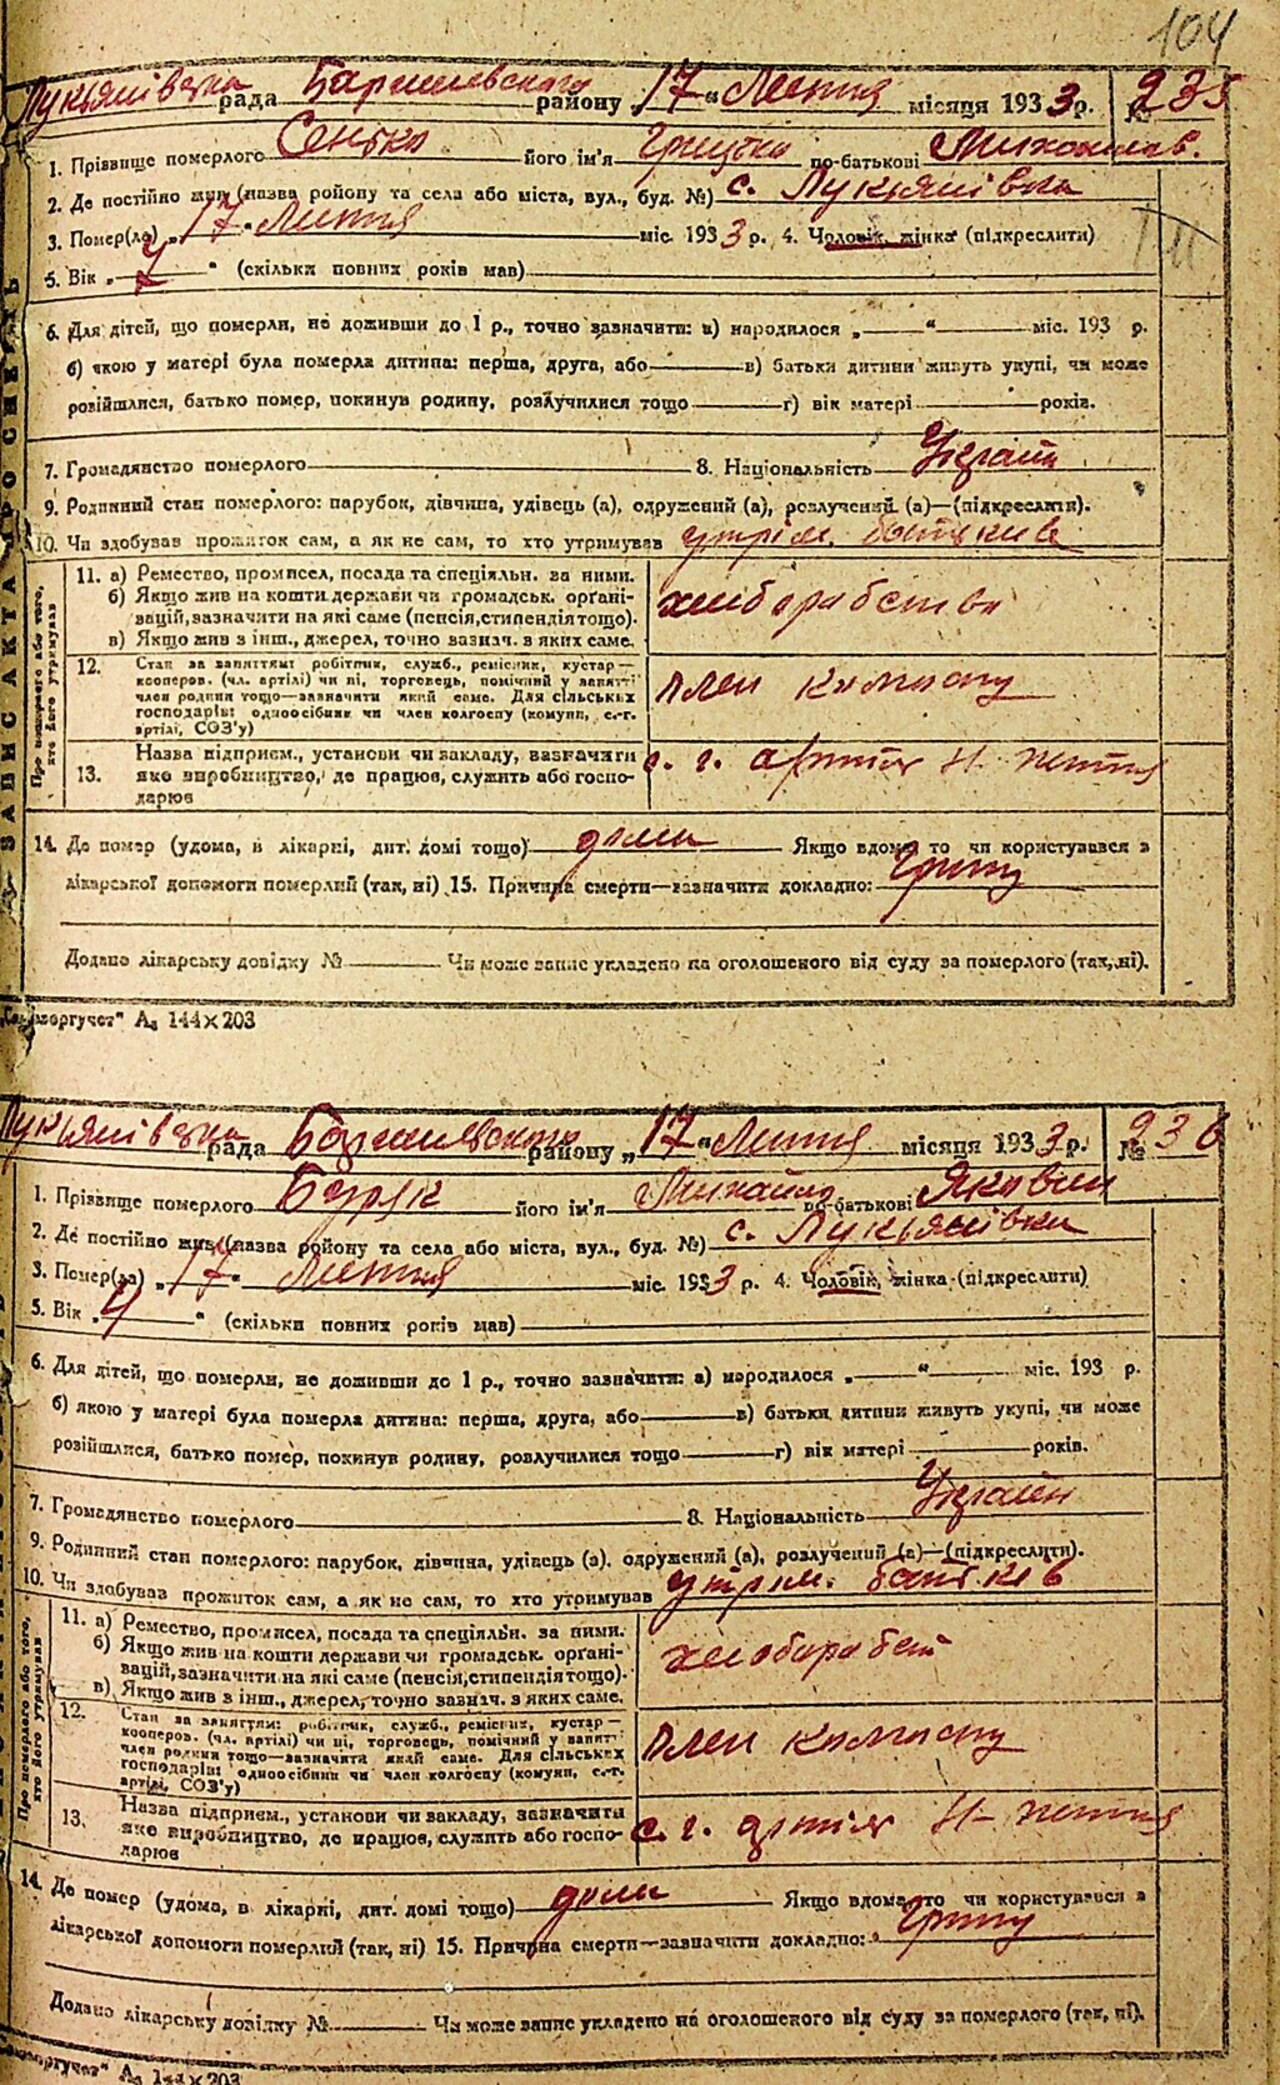 104
Лукьянівська рада Баришевського району „17“ Липня місяця 1933 р. № 235
1. Прізвище померлого Сенько його ім'я Грицько по-батькові Михайлов.
2. Де постійно жив (назва ройону та села або міста, вул., буд. №) с. Лукьянівка
3. Помер(ла) „17“ Липня міс. 1933 р. 4. Чоловік, жінка (підкреслити)
5. Вік „ “ (скільки повних років мав)
6. Для дітей, що померли, не доживши до 1 р., точно зазначити: а) народилося „ “ міс. 193 р.
б) якою у матері була померла дитина: перша, друга, або в) батьки дитини живуть укупі, чи може
розійшлися, батько помер, покинув родину, розлучилися тощо г) вік матері років.
7. Громадянство померлого 8. Національність Україн
9. Родинний стан померлого: парубок, дівчина, удівець (а), одружений (а), розлучений (а)—(підкреслити).
10. Чи здобував прожиток сам, а як не сам, то хто утримував утрим. батьків
ЗАПИС АКТА ПРО СМЕРТЬ
Про померлого або того, хто його утримував
11. а) Ремество, промисел, посада та спеціяльн. за ними.
б) Якщо жив на кошти держави чи громадськ. орґані-
зацій, зазначити на які саме (пенсія, стипендія тощо).
в) Якщо жив з інш., джерел, точно зазнач. в яких саме.
хліборобство
12. Стан за заняттям: робітник, служб., ремісник, кустар—
кооперов. (чл. артілі) чи ні, торговець, помічний у занятті
член родини тощо—зазначити який саме. Для сільських
господарів: одноосібник чи член колгоспу (комуни, с.-г.
артілі, СОЗ'у)
член колгоспу
13. Назва підприєм., установи чи закладу, зазначити
яке виробництво, де працює, служить або госпо-
дарює
с. г. артіль
14. Де помер (удома, в лікарні, дит. домі тощо) дома Якщо вдома, то чи користувався з
лікарської допомоги померлий (так, ні) 15. Причина смерти—зазначити докладно: Грипу
Додано лікарську довідку № Чи може запис укладено на оголошеного від суду за померлого (так, ні).
А₅ 144×203
Лукьянівська рада Баришевського району „17“ Липня місяця 1933 р. № 236
1. Прізвище померлого Буряк його ім'я Михайло по-батькові Яковин
2. Де постійно жив (назва ройону та села або міста, вул., буд. №) с. Лукьянівки
3. Помер(ла) „17“ Липня міс. 1933 р. 4. Чоловік, жінка (підкреслити)
5. Вік „4“ (скільки повних років мав)
6. Для дітей, що померли, не доживши до 1 р., точно зазначити: а) народилося „ “ міс. 193 р.
б) якою у матері була померла дитина: перша, друга, або в) батьки дитини живуть укупі, чи може
розійшлися, батько помер, покинув родину, розлучилися тощо г) вік матері років.
7. Громадянство померлого 8. Національність Україн
9. Родинний стан померлого: парубок, дівчина, удівець (а), одружений (а), розлучений (а)—(підкреслити).
10. Чи здобував прожиток сам, а як не сам, то хто утримував утрим. батьків
Про померлого або того, хто його утримував
11. а) Ремество, промисел, посада та спеціяльн. за ними.
б) Якщо жив на кошти держави чи громадськ. орґані-
зацій, зазначити на які саме (пенсія, стипендія тощо).
в) Якщо жив з інш., джерел, точно зазнач. в яких саме.
хлоборобст
12. Стан за заняттям: робітник, служб., ремісник, кустар—
кооперов. (чл. артілі) чи ні, торговець, помічний у занятті
член родини тощо—зазначити який саме. Для сільських
господарів: одноосібник чи член колгоспу (комуни, с.-г.
артілі, СОЗ'у)
член колгоспу
13. Назва підприєм., установи чи закладу, зазначити
яке виробництво, де працює, служить або госпо-
дарює
с. г. артіль
14. Де помер (удома, в лікарні, дит. домі тощо) дома Якщо вдома, то чи користувався з
лікарської допомоги померлий (так, ні) 15. Причина смерти—зазначити докладно: Грипу
Додано лікарську довідку № Чи може запис укладено на оголошеного від суду за померлого (так, ні).
А₅ 144×203